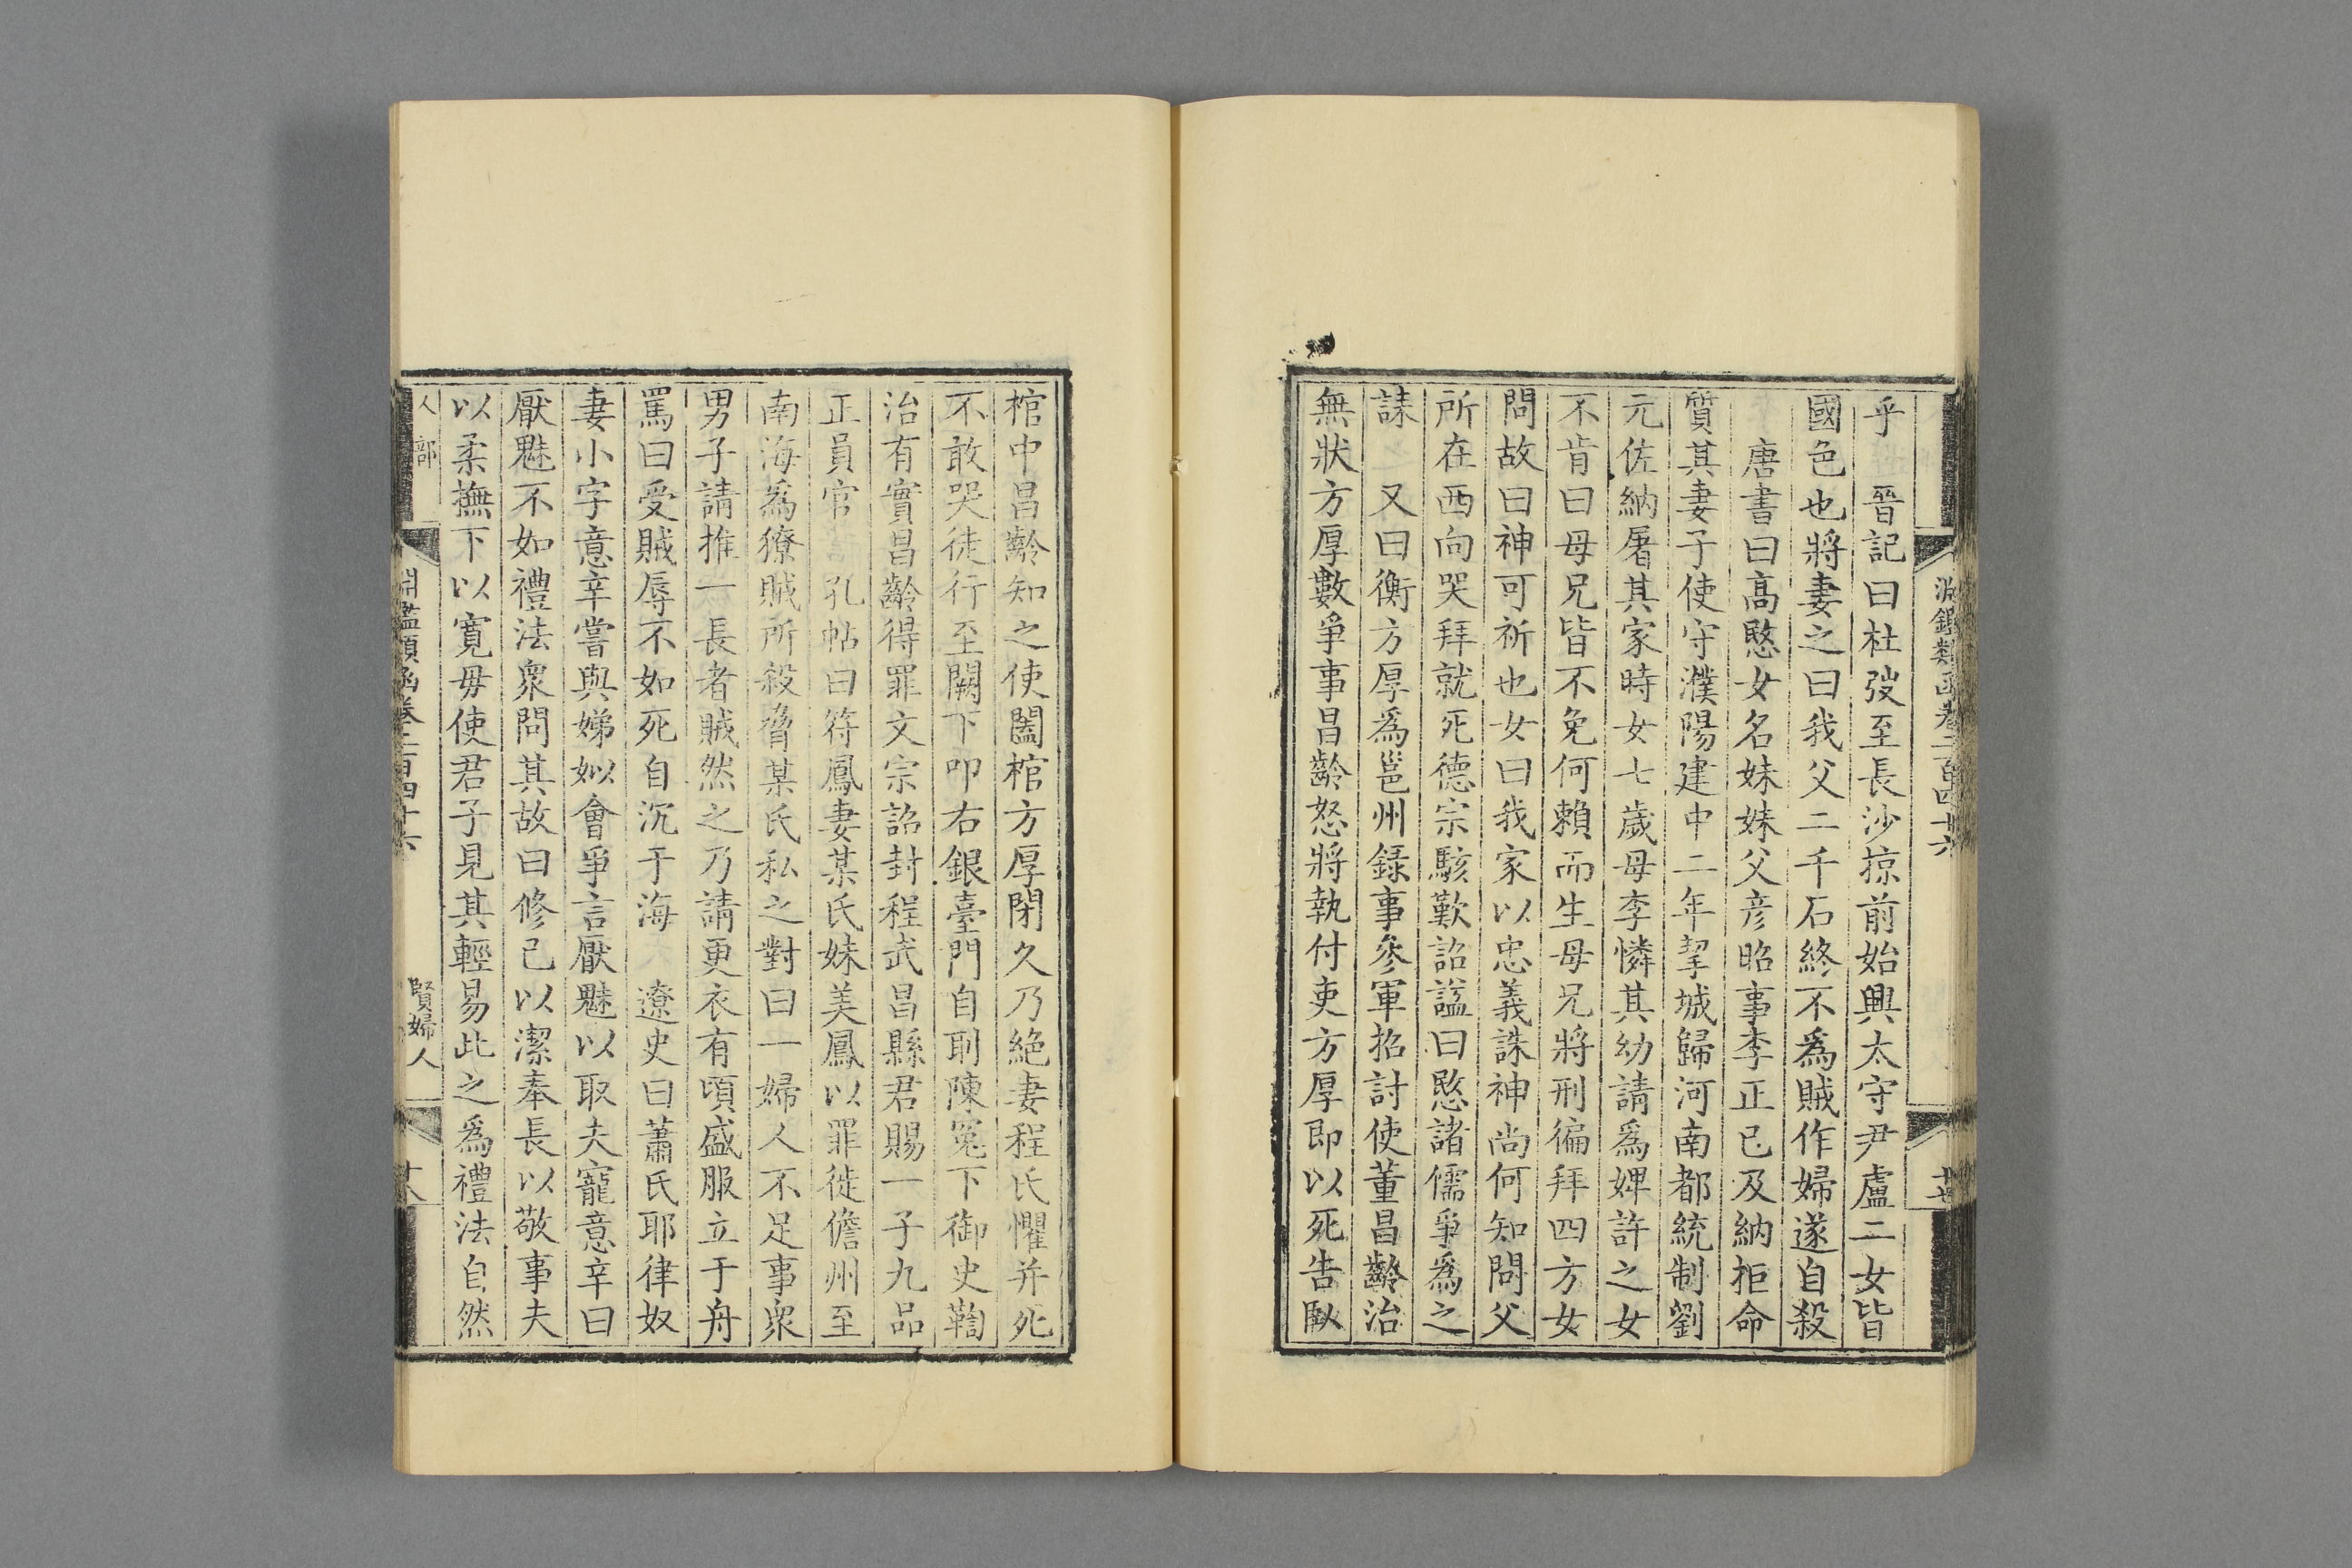 淵鑑類函卷二百四十六
十七
乎　晉記曰杜弢至長沙掠前始興太守尹盧二女皆
國色也將妻之曰我父二千石終不爲賊作婦遂自殺
唐書曰高愍女名妹妹父彦昭事李正已及納拒命
質其妻子使守濮陽建中二年挈城歸河南都統制劉
元佐納屠其家時女七歲母李憐其幼請爲婢許之女
不肯曰母兄皆不免何賴而生母兄將刑徧拜四方女
問故曰神可祈也女曰我家以忠義誅神尚何知問父
所在西向哭拜就死德宗駭歎詔諡曰愍諸儒爭爲之
誄　又曰衡方厚爲邕州録事參軍招討使董昌齡治
無狀方厚數爭事昌齡怒將執付吏方厚即以死告臥
棺中昌齡知之使闔棺方厚閉久乃絶妻程氏懼并死
不敢哭徒行至闕下叩右銀臺門自刵陳冤下御史鞫
治有實昌齡得罪文宗詔封程武昌縣君賜一子九品
正員官　孔帖曰符鳳妻某氏妹美鳳以罪徙儋州至
南海爲獠賊所殺脅某氏私之對曰一婦人不足事衆
男子請推一長者賊然之乃請更衣有頃盛服立于舟
罵曰受賊辱不如死自沉于海　遼史曰蕭氏耶律奴
妻小字意辛嘗與娣姒會爭言厭魅以取夫寵意辛曰
厭魅不如禮法衆問其故曰修己以潔奉長以敬事夫
以柔撫下以寛毋使君子見其輕易此之爲禮法自然
人部　淵鑑類函卷二百四十六　賢婦人　十八